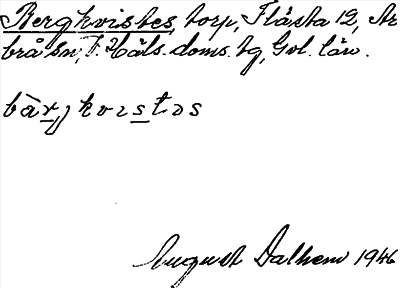 Bergkvistes, torp, Flästa 12, Ar
brå sn, V. Häls. doms. tg, Gvl. län.
bàrjkvıstəs
August Dalhem 1946